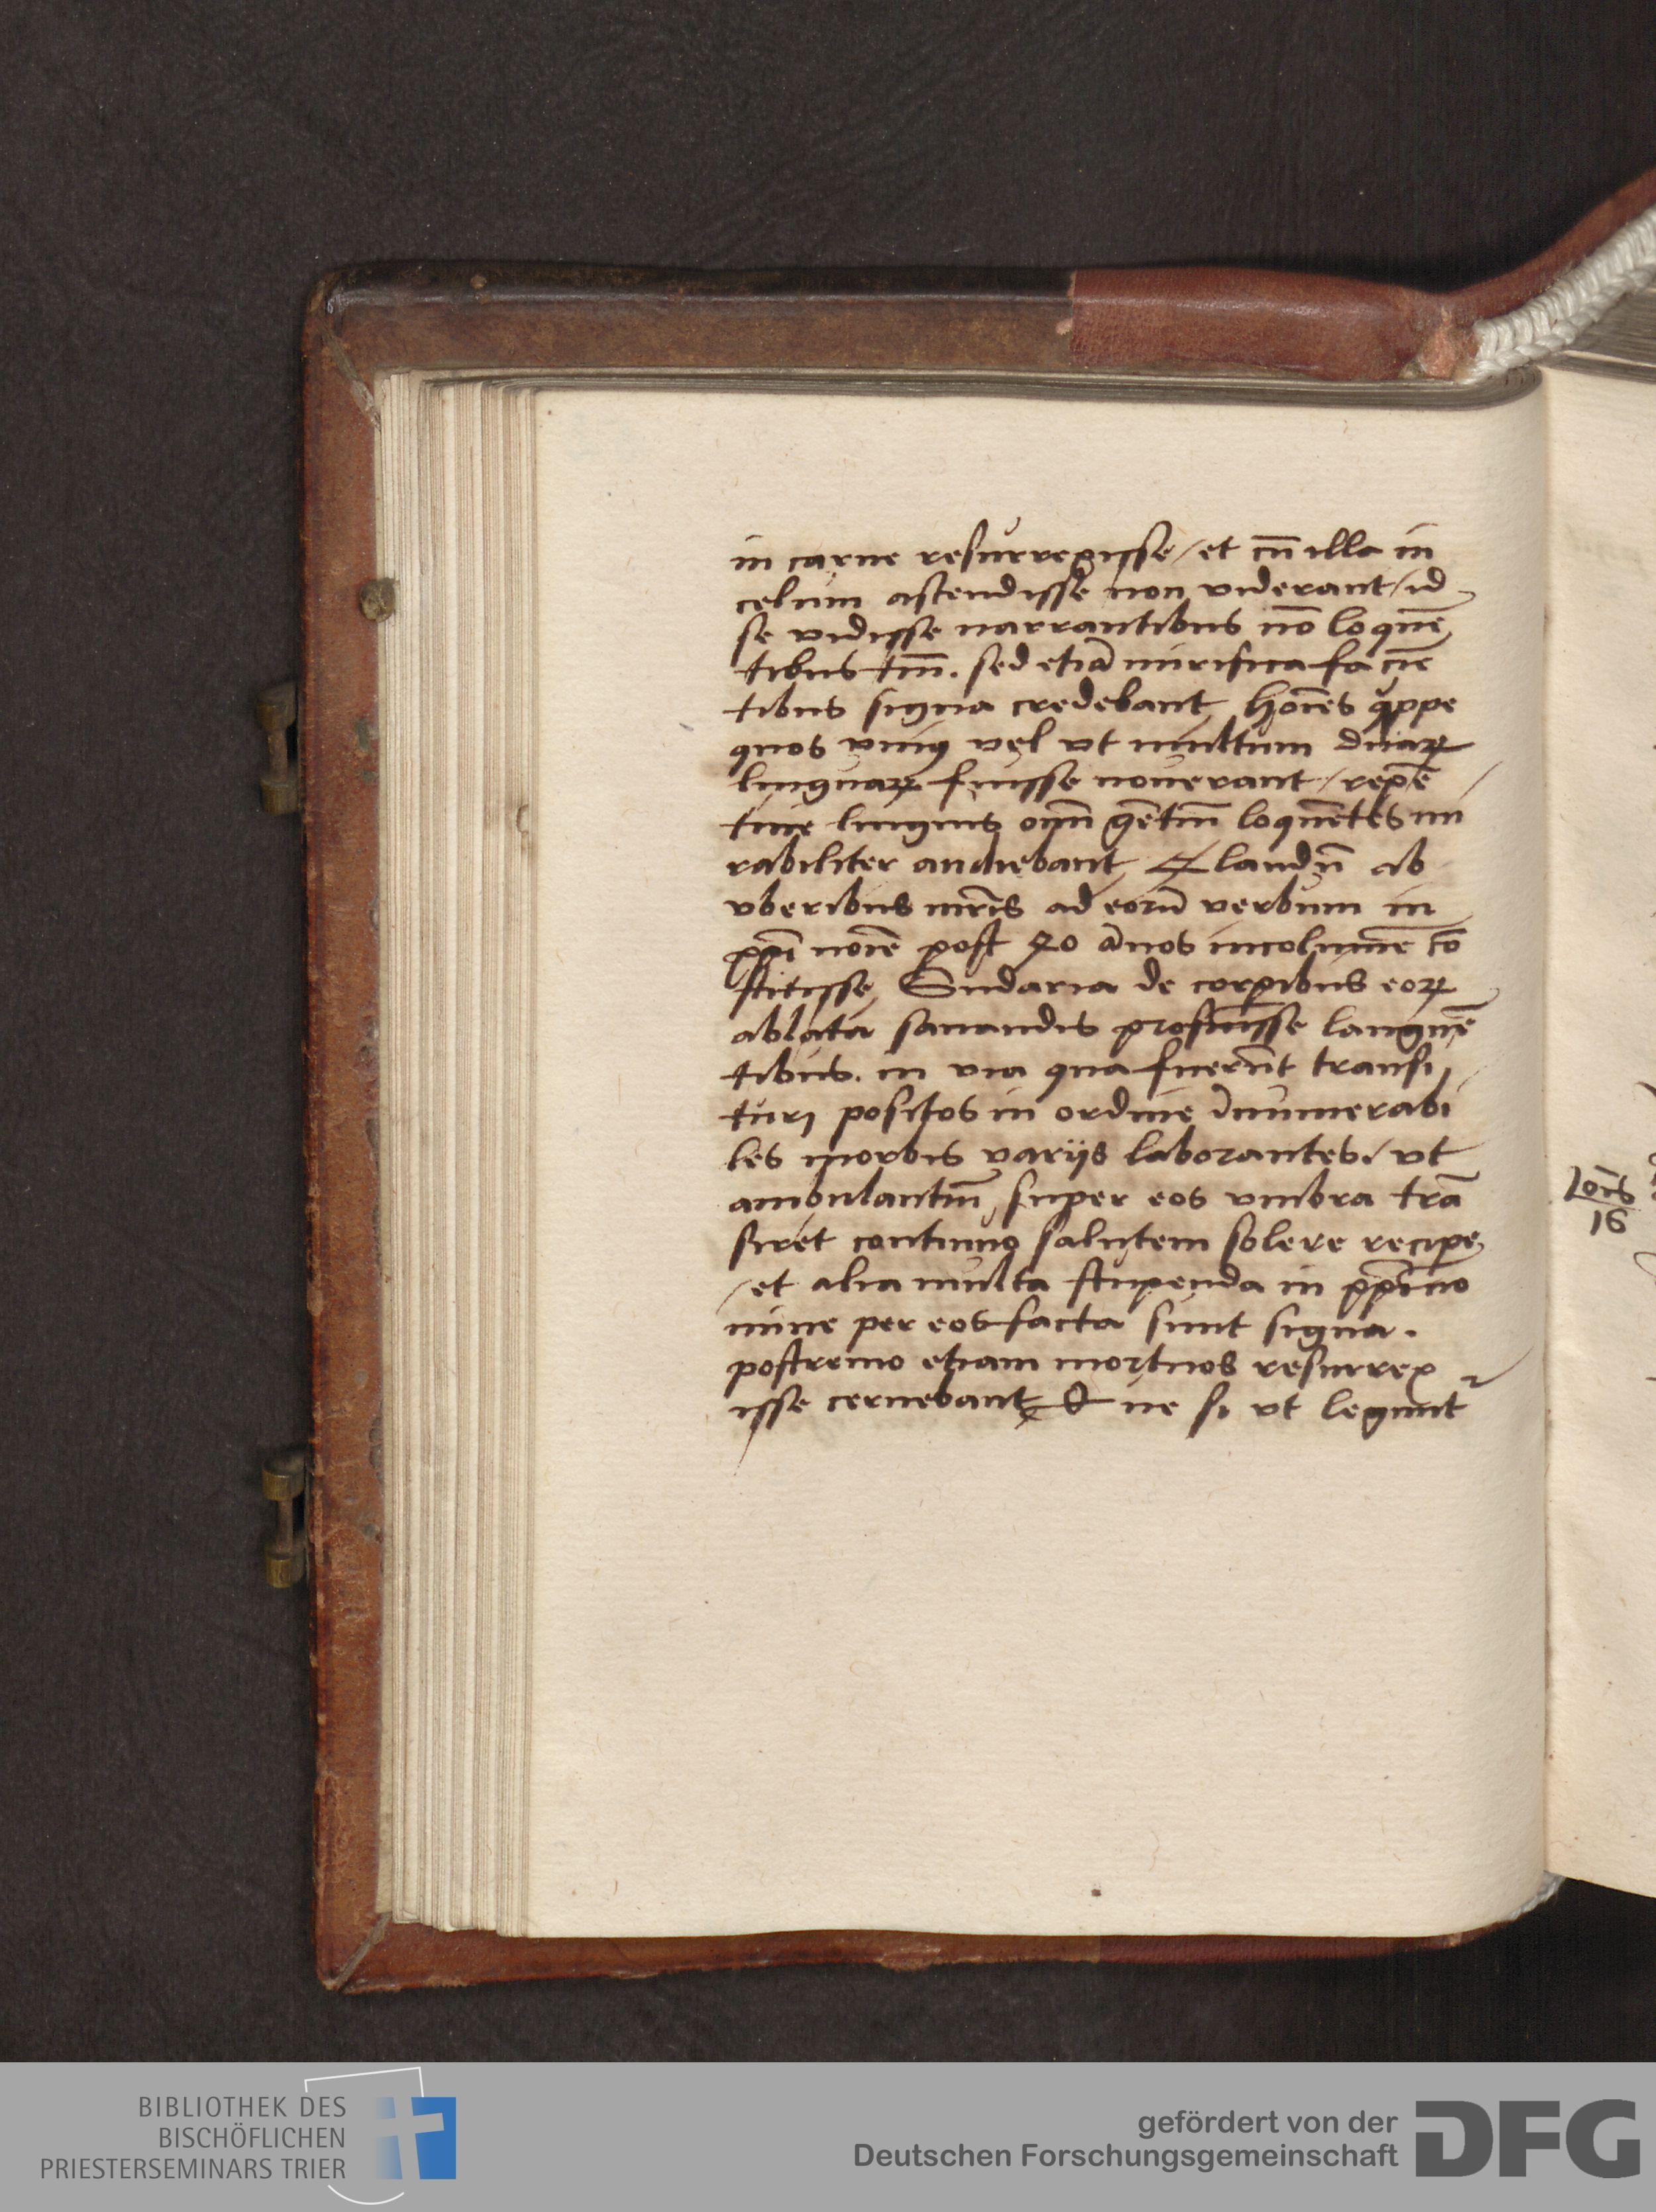 in carne resurrexisse / et cū illa in
celum ascendisse non viderant / id
se vidisse narrantibus nō loquē
tibus tm̄. sed etiā mirifica faciē
tibus signa credebant, hoīes qͥppe
quos vniꝰ vel vt multum duaꝝ
linguaꝝ fuisse nouerant / repē
tine linguis oīm gētiū loquētes mi
rabiliter audiebant, claudū ab
vberibus mr̄is ad eorū verbum in
xp̄i noīe post 40 ānos incolumē cō
stitisse, Sudaria de corpibus eoꝝ
ablata sanandis profuisse languē
tibus. in via qua fuerūt transi
turi positos in ordine innumerabi
les morbis varijs laborantes / vt
ambulantiū super eos vmbra trā
siret continuo salutem solere recipe
/ et alia multa stupenda in xp̄i no
mine per eos facta sunt signa.
postremo etiam mortuos resurrex
isse cernebant, & ne si vt legunt
Loīs
16
BIBLIOTHEK DES
BISCHÖFLICHEN
PRIESTERSEMINARS TRIER
gefördert von der
Deutschen Forschungsgemeinschaft
DFG